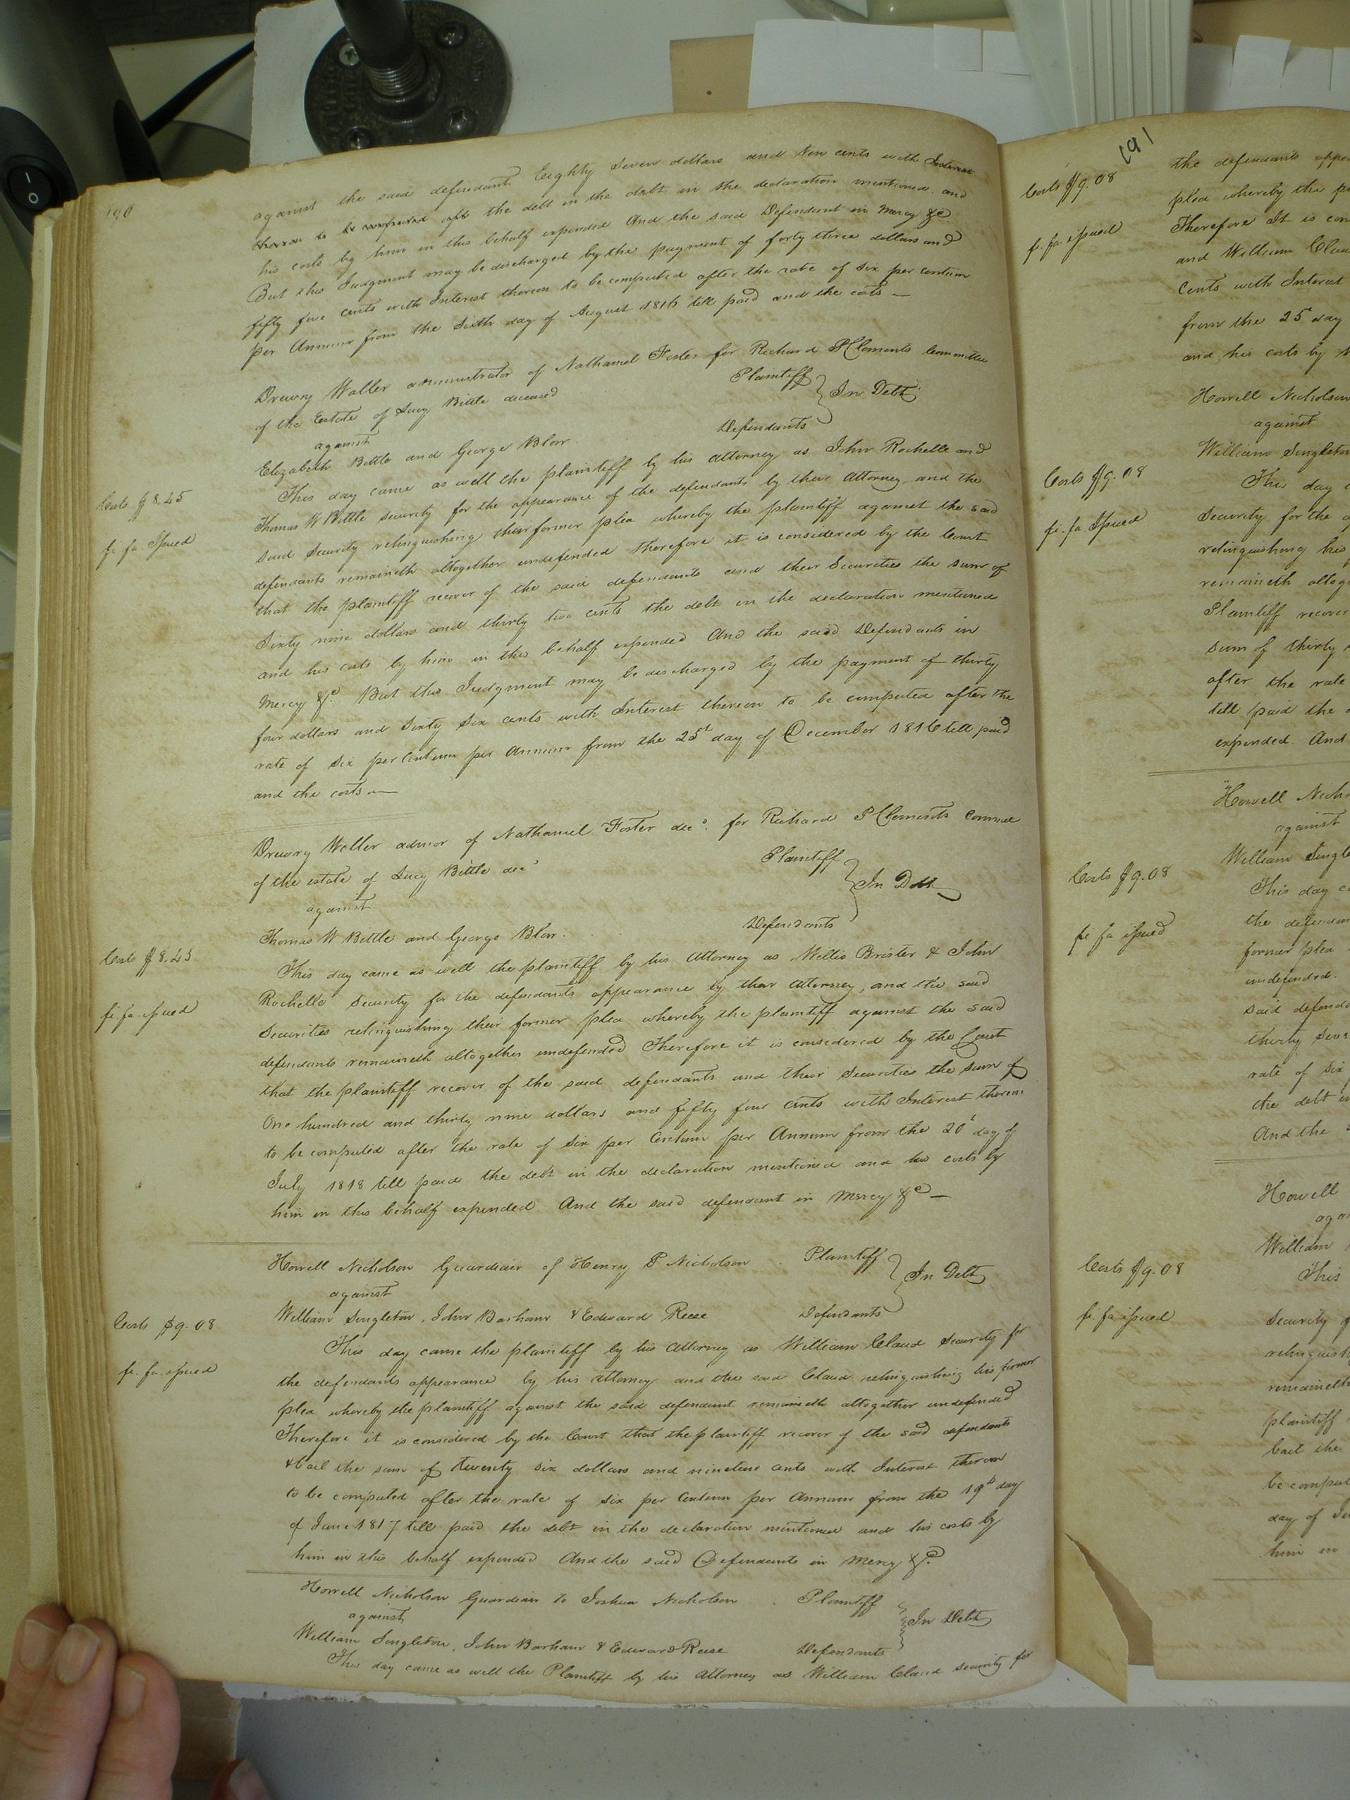 190
against the said defendants Eighty Seven dollars and ten cents with Interest
thereon to be computed aft the debt in the declaration mentioned and
his costs by him in this behalf expended And the said Defendant in Mercy &c
But this Judgment may be discharged by the payment of forty three dollars and
fifty five cents with Interest thereon to be computed after the rate of six per centum
per Annum from the Sixth day of August 1816 till paid and the costs —
Drewry Waller administrator of Nathaniel Foster for Richard P Clements Committee
of the Estate of Lucy Bittle deceased Plaintiff
against In Debt
Elizabeth Bittle and George Blow Defendants
Costs $8.45
fi. fa Issued
This day came as well the plaintiff by his attorney as John Rochelle and
Thomas W Bittle security for the appearance of the defendants by their Attorney and the
said Security relinquishing their former plea whereby the plaintiff against the said
defendants remaineth altogether undefended Therefore it is considered by the Court
that the plaintiff recover of the said defendants and their Securities the sum of
Sixty nine dollars and thirty two cents the debt in the declaration mentioned
and his costs by him in this behalf expended And the said Defendants in
Mercy &c But this Judgment may be discharged by the payment of thirty
four dollars and Sixty Six cents with Interest thereon to be computed after the
rate of six per Centum per Annum from the 25t day of December 1816 till paid
and the costs —
Drewry Waller admor of Nathaniel Foster decd. for Richard P Clements Commee
of the estate of Lucy Bittle decd Plaintiff
against In Debt
Thomas W Bittle and George Blow. Defendants
Costs $8.45
fi. fa issued
This day came as well the plaintiff by his Attorney as Willie Brister & John
Rochelle Security for the defendants appearance by their attorney, and the said
Securities relinquishing their former plea whereby the plaintiff against the said
defendants remaineth altogether undefended Therefore it is considered by the Court
that the plaintiff recover of the said defendants and their Securities the sum of
One hundred and thirty nine dollars and fifty four cents with Interest thereon
to be computed after the rate of six per Centum per Annum from the 20t day of
July 1818 till paid the debt in the declaration mentioned and his costs by
him in this behalf expended And the said defendant in Mercy &c —
Howell Nicholson Guardian of Henry P Nicholson Plaintiff
against In Debt
William Singleton, John Barham & Edward Reese Defendants
Costs $9.08
fi. fa issued
This day came the plaintiff by his Attorney as William Claud security for
the defendants appearance by his attorney and the said Claud relinquishing his former
plea whereby the plaintiff against the said defendant remaineth altogether undefended
Therefore it is considered by the Court that the plaintiff recover of the said defendants
& bail the sum of Twenty six dollars and nineteen cents with Interest thereon
to be computed after the rate of six per Centum per Annum from the 19th day
of June 1817 till paid the debt in the declaration mentioned and his costs by
him in this behalf expended And the said Defendants in Mercy &c.
Howell Nicholson Guardian to Joshua Nicholson Plaintiff
against In Debt
William Singleton, John Barham & Edward Reese Defendants
This day came as well the Plaintiff by his Attorney as William Claud security for
191
Costs $9.08
fi. fa issued
the defendants appe
plea whereby the p
Therefore It is con
and William Clau
Cents with Interest
from the 25 day
and his costs by
Howell Nicholson
against
William Singleton
Costs $9.08
fi. fa Issued
This day c
Security for the a
relinquishing his
remaineth altog
Plaintiff recover
sum of thirty
after the rate
till paid the
expended. And
Howell Nich
against
William Single
Costs $9.08
fi fa issued
This day c
the defendan
former plea
undefended.
said defend
thirty Seve
rate of six
the debt in
And the
Howell
aga
William
Costs $9.08
fi. fa issued
This
Security f
relinquish
remaineth
plaintiff
bail the
be comput
day of
him in